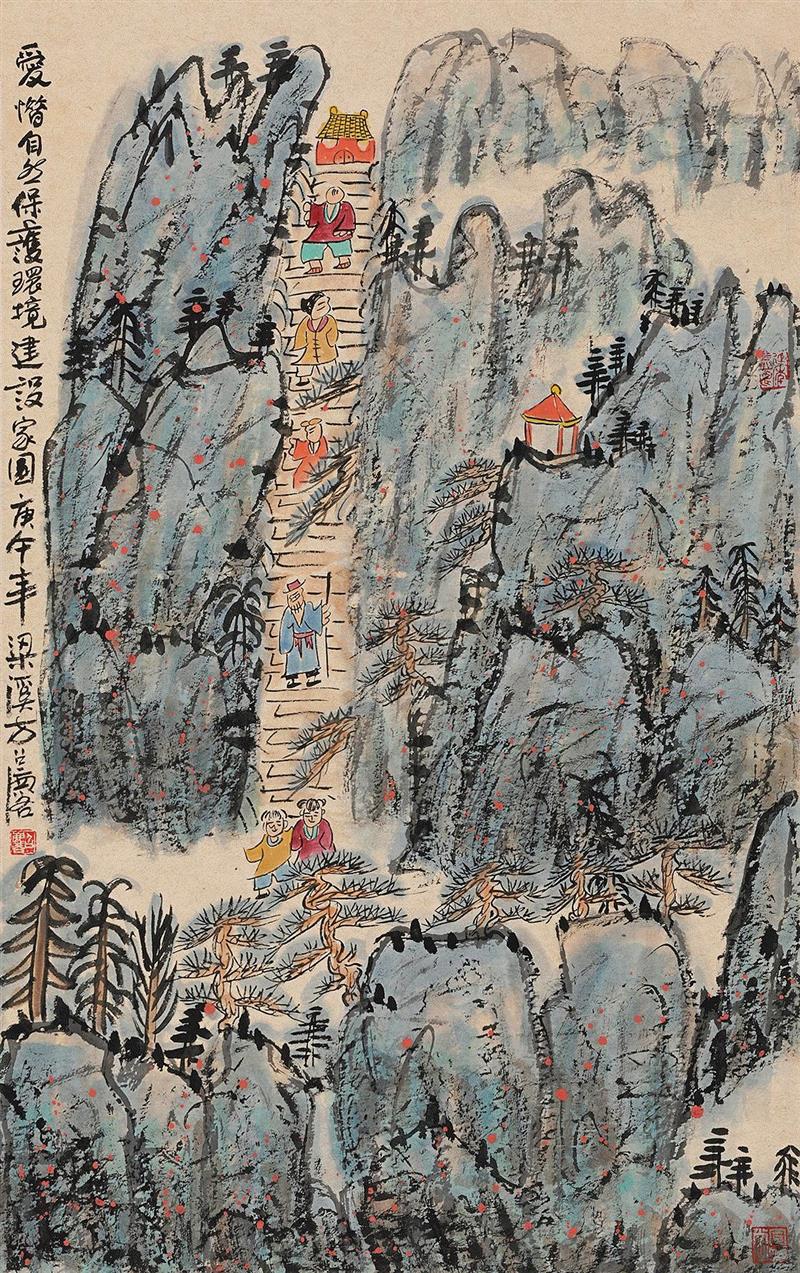 愛惜自然保護環境建設家園庚午年梁溪方召麐